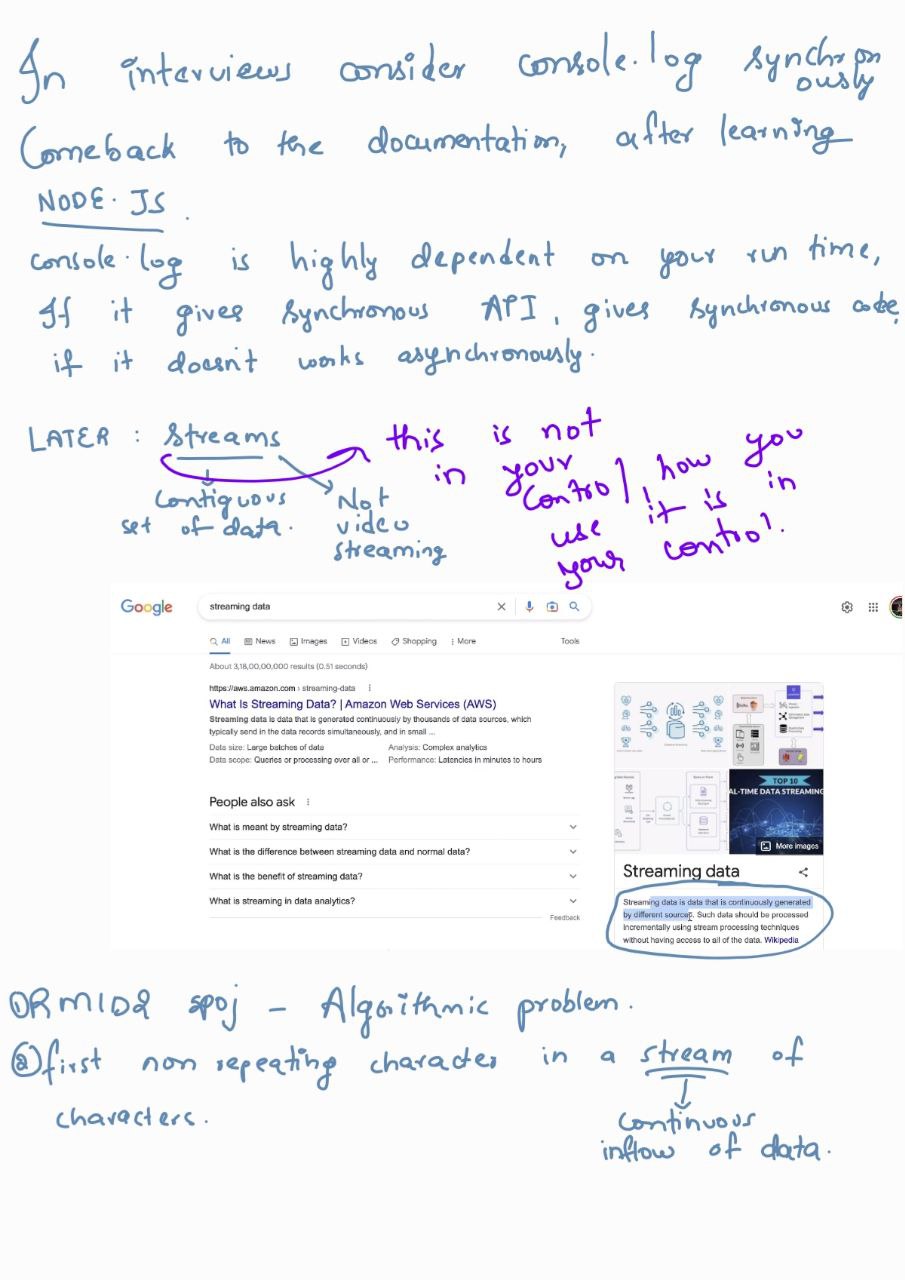 In interviews consider console.log synchron
ously
Comeback to the documentation, after learning
NODE.JS.
console.log is highly dependent on your run time,
If it gives synchronous API, gives synchronous code,
if it doesn't works asynchronously.
LATER : Streams
this is not
in your
control! how you
use it is in
your control.
Contiguous
set of data.
Not
video
streaming
Google
streaming data
All News Images Videos Shopping More Tools
About 3,18,00,00,000 results (0.51 seconds)
https://aws.amazon.com › streaming-data
What Is Streaming Data? | Amazon Web Services (AWS)
Streaming data is data that is generated continuously by thousands of data sources, which
typically send in the data records simultaneously, and in small ...
Data size: Large batches of data Analysis: Complex analytics
Data scope: Queries or processing over all or ... Performance: Latencies in minutes to hours
People also ask
What is meant by streaming data?
What is the difference between streaming data and normal data?
What is the benefit of streaming data?
What is streaming in data analytics?
Feedback
TOP 10
AL-TIME DATA STREAMING
More images
Streaming data
Streaming data is data that is continuously generated
by different sources. Such data should be processed
incrementally using stream processing techniques
without having access to all of the data. Wikipedia
① RMID2 spoj - Algorithmic problem.
② first non repeating character in a stream of
characters.
Continuous
inflow of data.